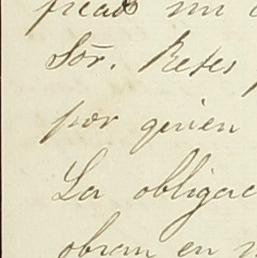 mi
Sōr. Retes
por quien
La obligac
obran en